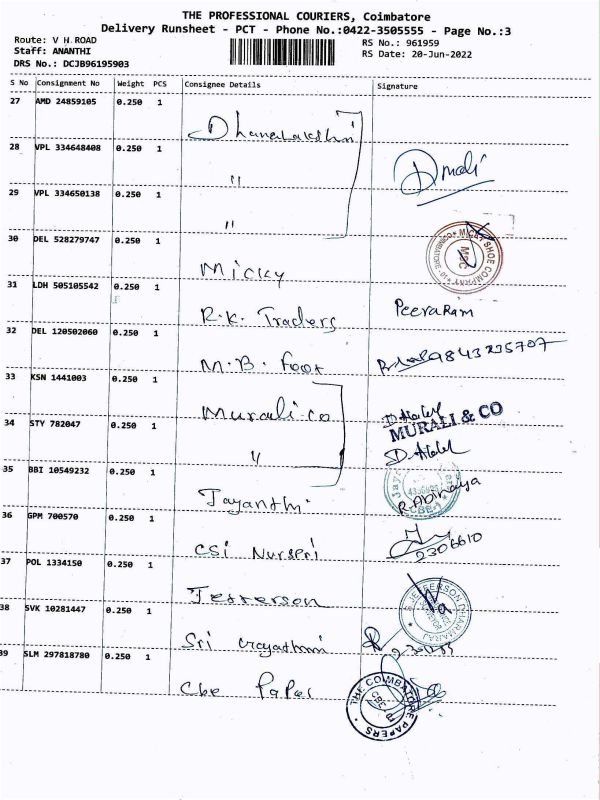 THE PROFESSIONAL COURIERS, Coimbatore
Delivery Runsheet - PCT - Phone No.:0422-3505555 - Page No.:3
Route: V H.ROAD
Staff: ANANTHI
DRS No.: DCJB96195903
RS No.: 961959
RS Date: 20-Jun-2022
S No Consignment No Weight PCS Consignee Details Signature
27 AMD 24859105 0.250 1 Dhanalakshmi
28 VPL 334648408 0.250 1 "
29 VPL 334650138 0.250 1 "
30 DEL 528279747 0.250 1 Micky
31 LDH 505105542 0.250 1 R.K. Traders Peeraram
32 DEL 120502060 0.250 1 M.B. Foot 9843235707
33 KSN 1441003 0.250 1 Murali co MURALI & CO
34 STY 782047 0.250 1 "
35 BBI 10549232 0.250 1 Jayanthi R. Abinaya
36 GPM 700570 0.250 1 CSI Nurseri 2306610
37 POL 1334150 0.250 1 Jefferson
38 SVK 10281447 0.250 1 Sri
39 SLM 297818780 0.250 1 Cbe Paper THE COIMBATORE PAPERS